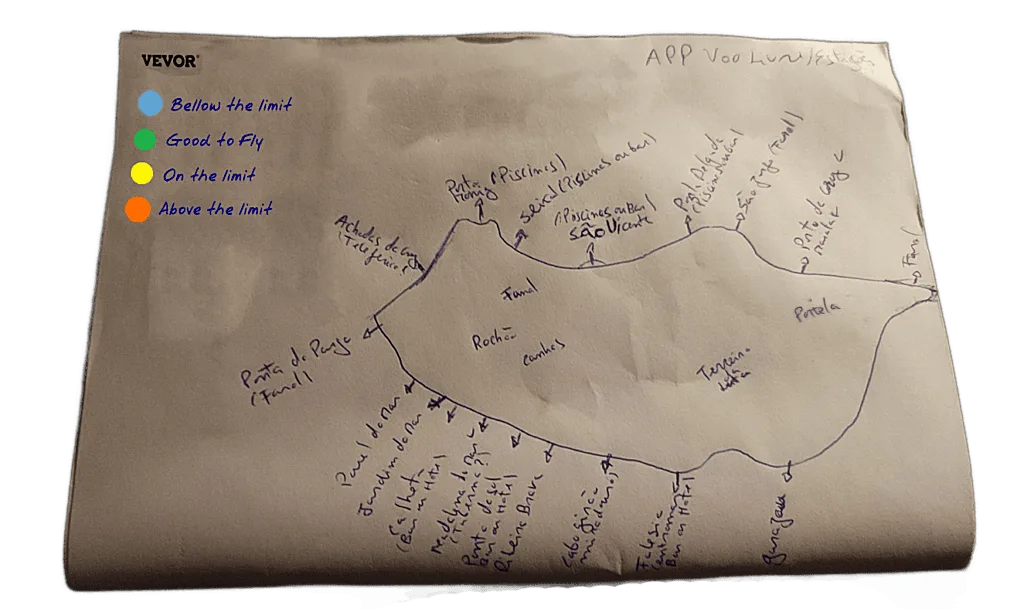 VEVOR
APP Voo Livre/Estações
Bellow the limit
Good to Fly
On the limit
Above the limit
Porto
Moniz (Piscinas)
seixal (Piscinas ou bar)
(Piscinas ou bar)
São Vicente
Ponta Delgada
(Piscinas
São Jorge (Farol)
Porto da cruz
Farol
Achadas da cruz
(Teleférico)
Fanal
Rochão
canhas
Portela
Terreiro
Luta
Ponta do Pargo
(Farol)
Paul do Mar
Jardim do Mar
Calheta
(Bar ou Hotel
Madalena do Mar
(Taberna?)
Ponta do Sol
Bar ou Hotel
Ribeira Brava
Cabo girão
miradouro
Falesia
Bar ou Hotel
garajau